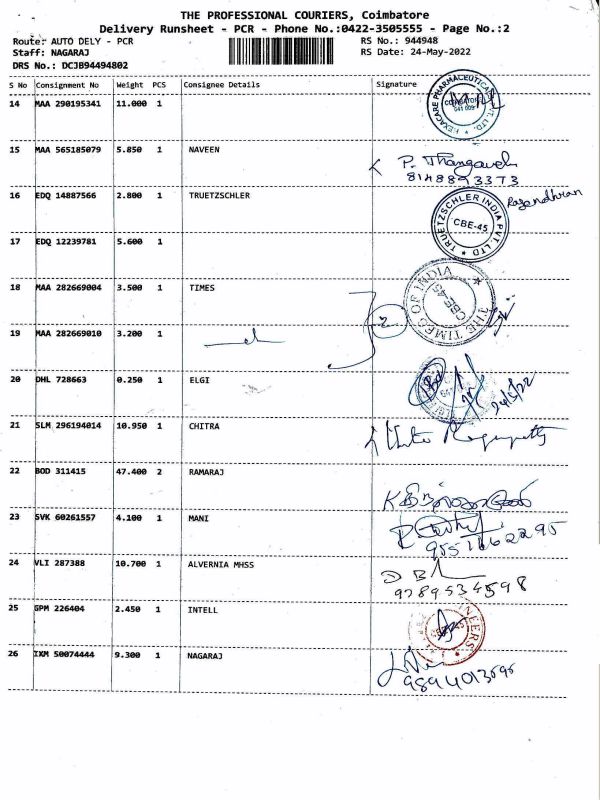 THE PROFESSIONAL COURIERS, Coimbatore
Delivery Runsheet - PCR - Phone No.:0422-3505555 - Page No.:2
Route: AUTO DELY - PCR RS No.: 944948
Staff: NAGARAJ RS Date: 24-May-2022
DRS No.: DCJB94494802
S No Consignment No Weight PCS Consignee Details Signature
14 MAA 290195341 11.000 1
HEXACARE PHARMACEUTICAL PVT. LTD. COIMBATORE
15 MAA 565185079 5.850 1 NAVEEN
P. Thangavel
8148893373
16 EDQ 14887566 2.800 1 TRUETZSCHLER
TRUETZSCHLER INDIA PVT. LTD CBE-45
Rajendhran
17 EDQ 12239781 5.600 1
18 MAA 282669004 3.500 1 TIMES
THE TIMES OF INDIA CBE-45
2
19 MAA 282669010 3.200 1
20 DHL 728663 0.250 1 ELGI
24/5/22
21 SLM 296194014 10.950 1 CHITRA
22 BOD 311415 47.400 2 RAMARAJ
23 SVK 60261557 4.100 1 MANI
24 VLI 287388 10.700 1 ALVERNIA MHSS
9789534598
25 GPM 226404 2.450 1 INTELL
26 IXM 50074444 9.300 1 NAGARAJ